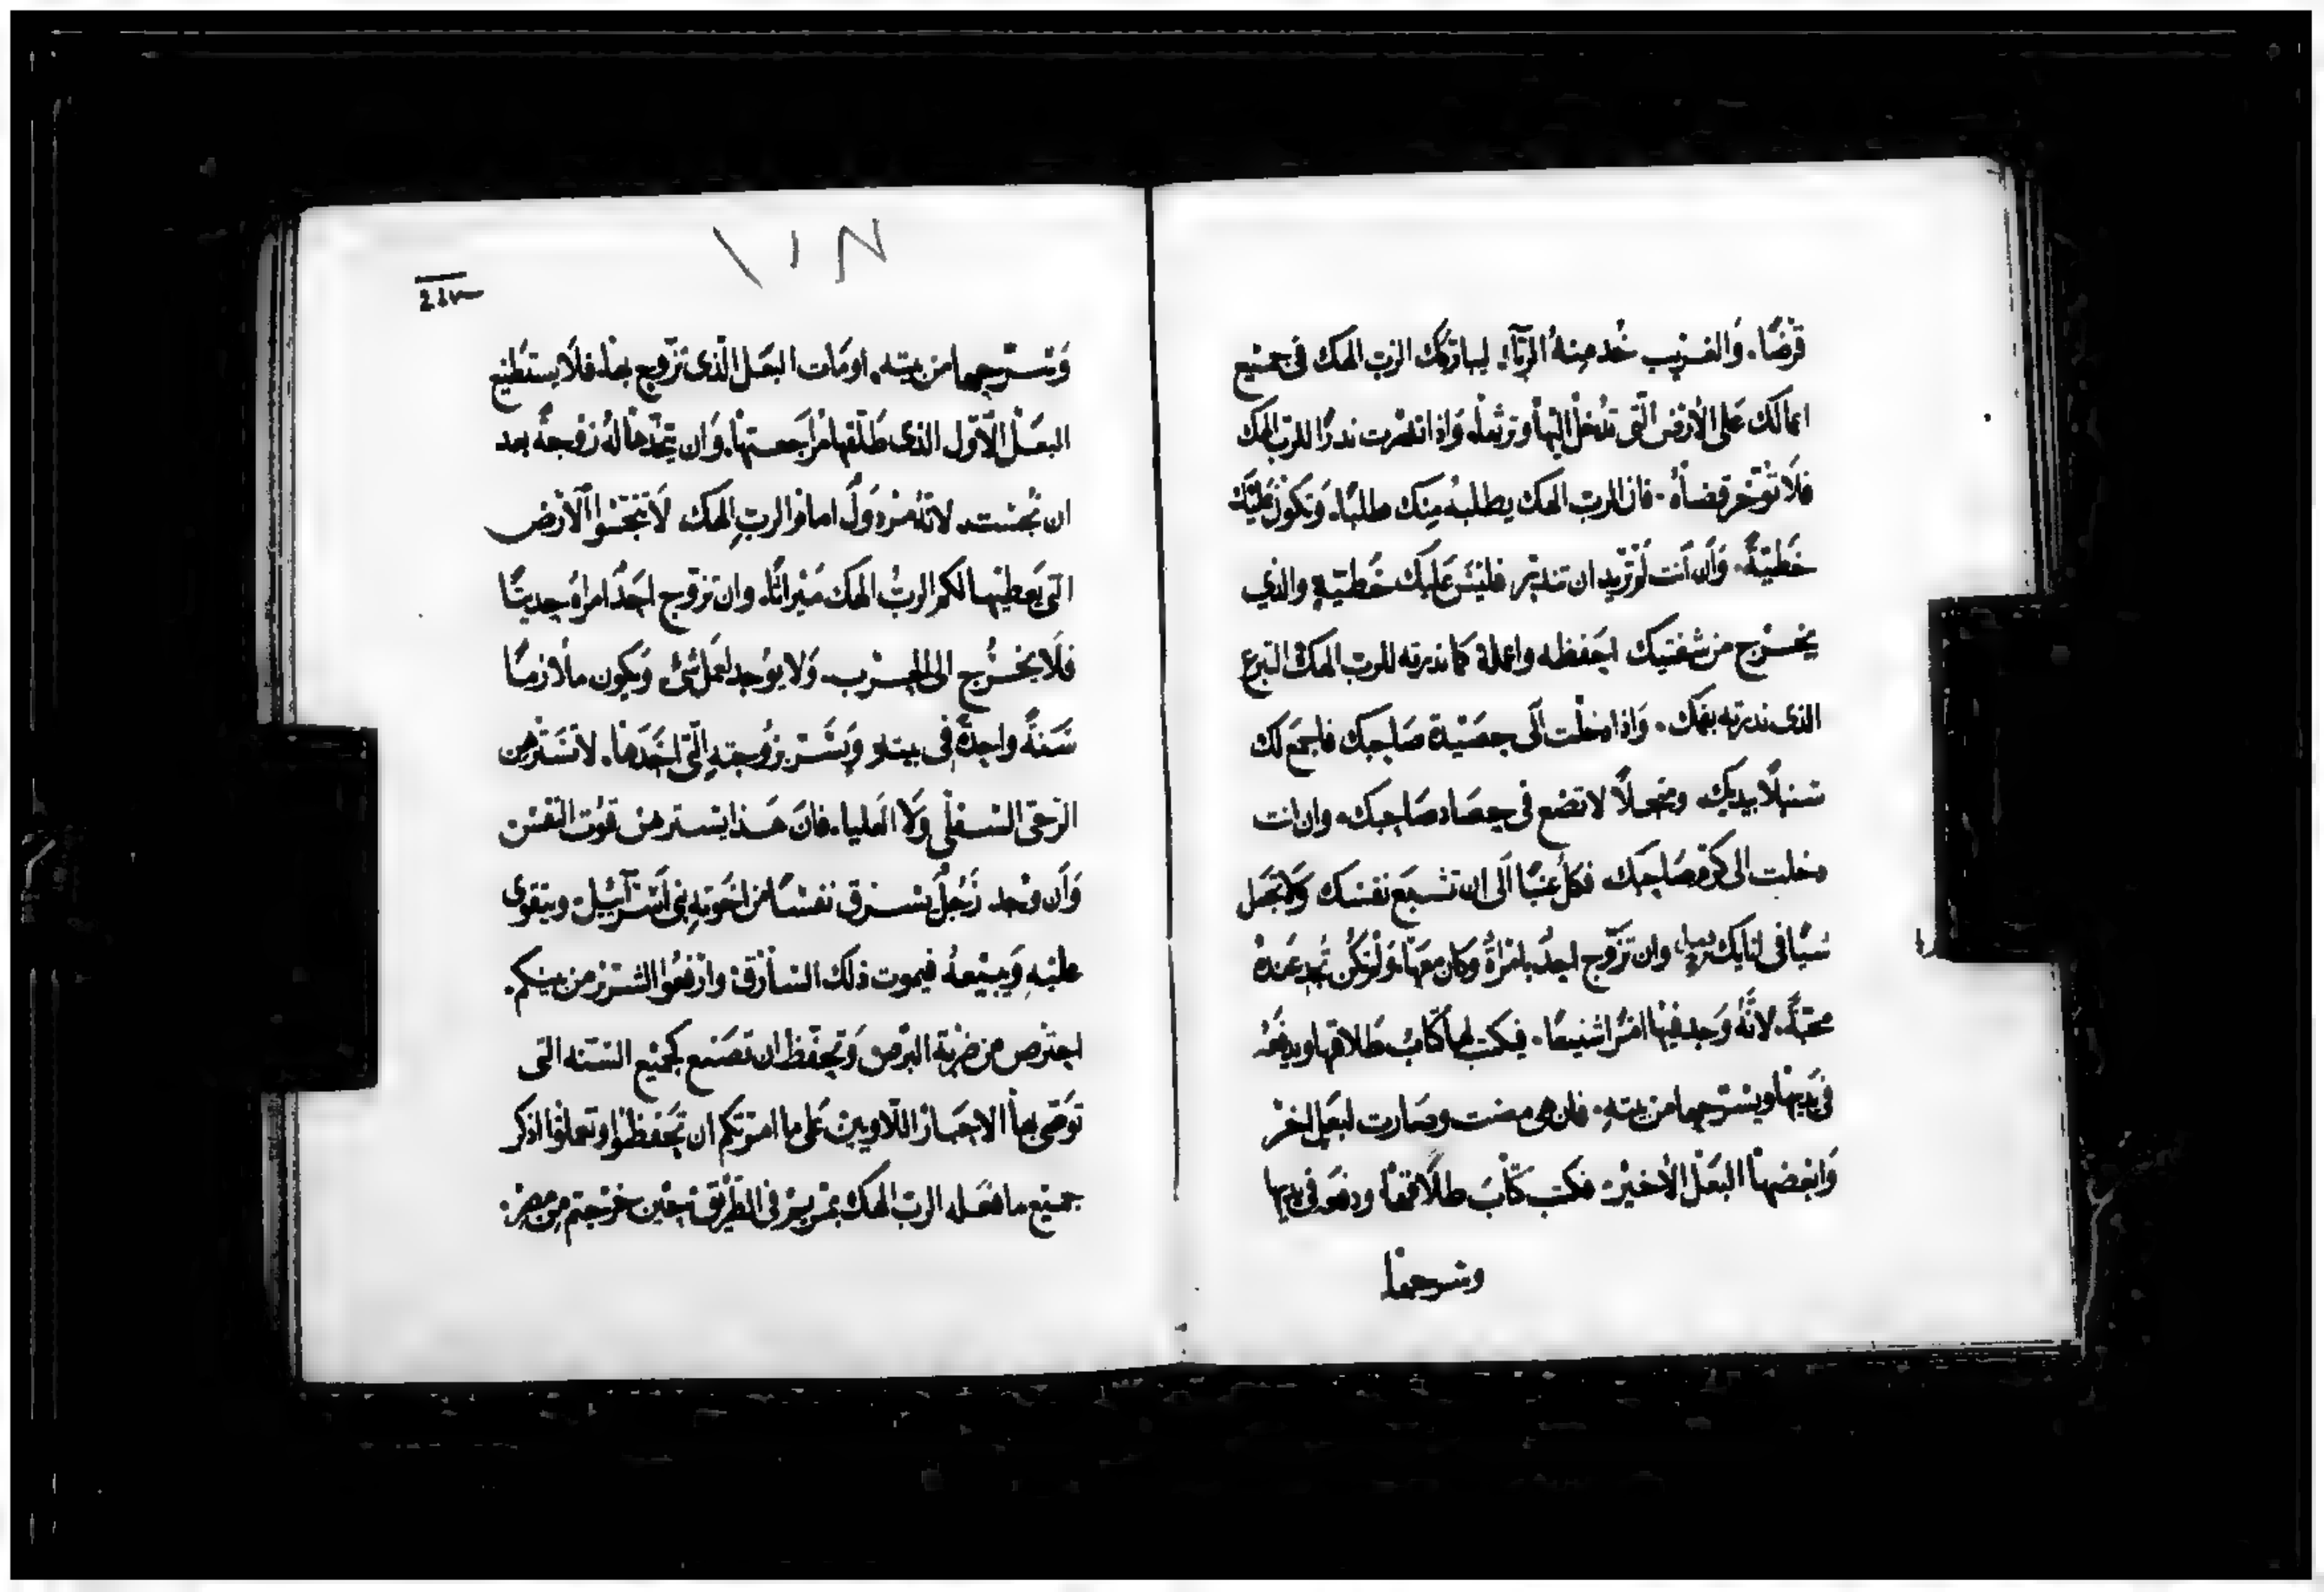 قرضًا. والغريب خُد منهُ الرّبآ. ليباركك الرب الهك فى جميع
اعمالك على الأرض الّتى تدخل اليها وترثها. واذا نذرت ندرًا للرب الهك
فلا تؤخر قضاهُ. فان الرب الهك يطلبهُ منك طلبًا. وتكون عليك
خطيّةً. وان انت لم تريد ان تندر. فليس عليك خطيّة والذي
يخرج من شفتيك احفظه واعمله كما ندرته للرب الهك التبرع
الذى ندرته بفمك. واذا دخلت الى حصيدة صاحبك فاجمع لك
سنبلًا بيديك. ومنجلًا لا تضع فى حصاد صاحبك. وان انت
دخلت الى كرم صاحبك فكل عنبًا الى ان تشبع نفسك ولا تجعل
شيًا فى انايك وان تزوج احدٌ بامراةً وكان معها ولم تكن تجد عنده
محبّةً. لانّهُ وجد فيها امرًا شنيعًا. فيكتب لها كتابُ طلاقها ويدفعهُ
فى يديها ويسرحها من بيتهِ. فان هى مضت وصارت لبعل اخر
وابغضها البعل الاخير. فكتب كتابَ طلاقها ودفعهُ فى يديها
وسرحها
٢٢٣
وسرحها من بيته. او مات البعل الّذى تزوج بها. فلا يستطيع
البعل الأوّل الذى طلّقها مراجعتها. وان يتخذها لهُ زوجةً بعد
ان نجست. لانّهُ مردولٌ امام الرب الهك لا تنجسوا الأرض
التى يعطيها لكم الربُ الهك ميراثًا. وان تزوج احدٌ امراه جديدًا
فلا يخرُج الى الحرب. ولا يوجد لعمل شئ ويكون ملازمًا
سنةً واحدةً فى بيته ويسر بزوجته التى اخدها. لا تسترهن
الرّحى السفلى ولا العليا. فان هدا يسترهن قوت النفس
وان وجد رجلٌ يسرق نفسًا من اخوتهِ بنى اسرآييل. ويتقوى
عليهِ ويبيعهُ فيموت ذلك السارق. وارفعُوا الشر من بينكم.
احترص من ضربة البرص وتحفظ ان تصنع كجميع السنّه التى
توصى بها الاحبار اللاويين على ما امرتكم ان تحفظوا وتعملوا اذكر
جميع ما فعله الرب الهك بمريم فى الطريق حين خرجتم من مصر.